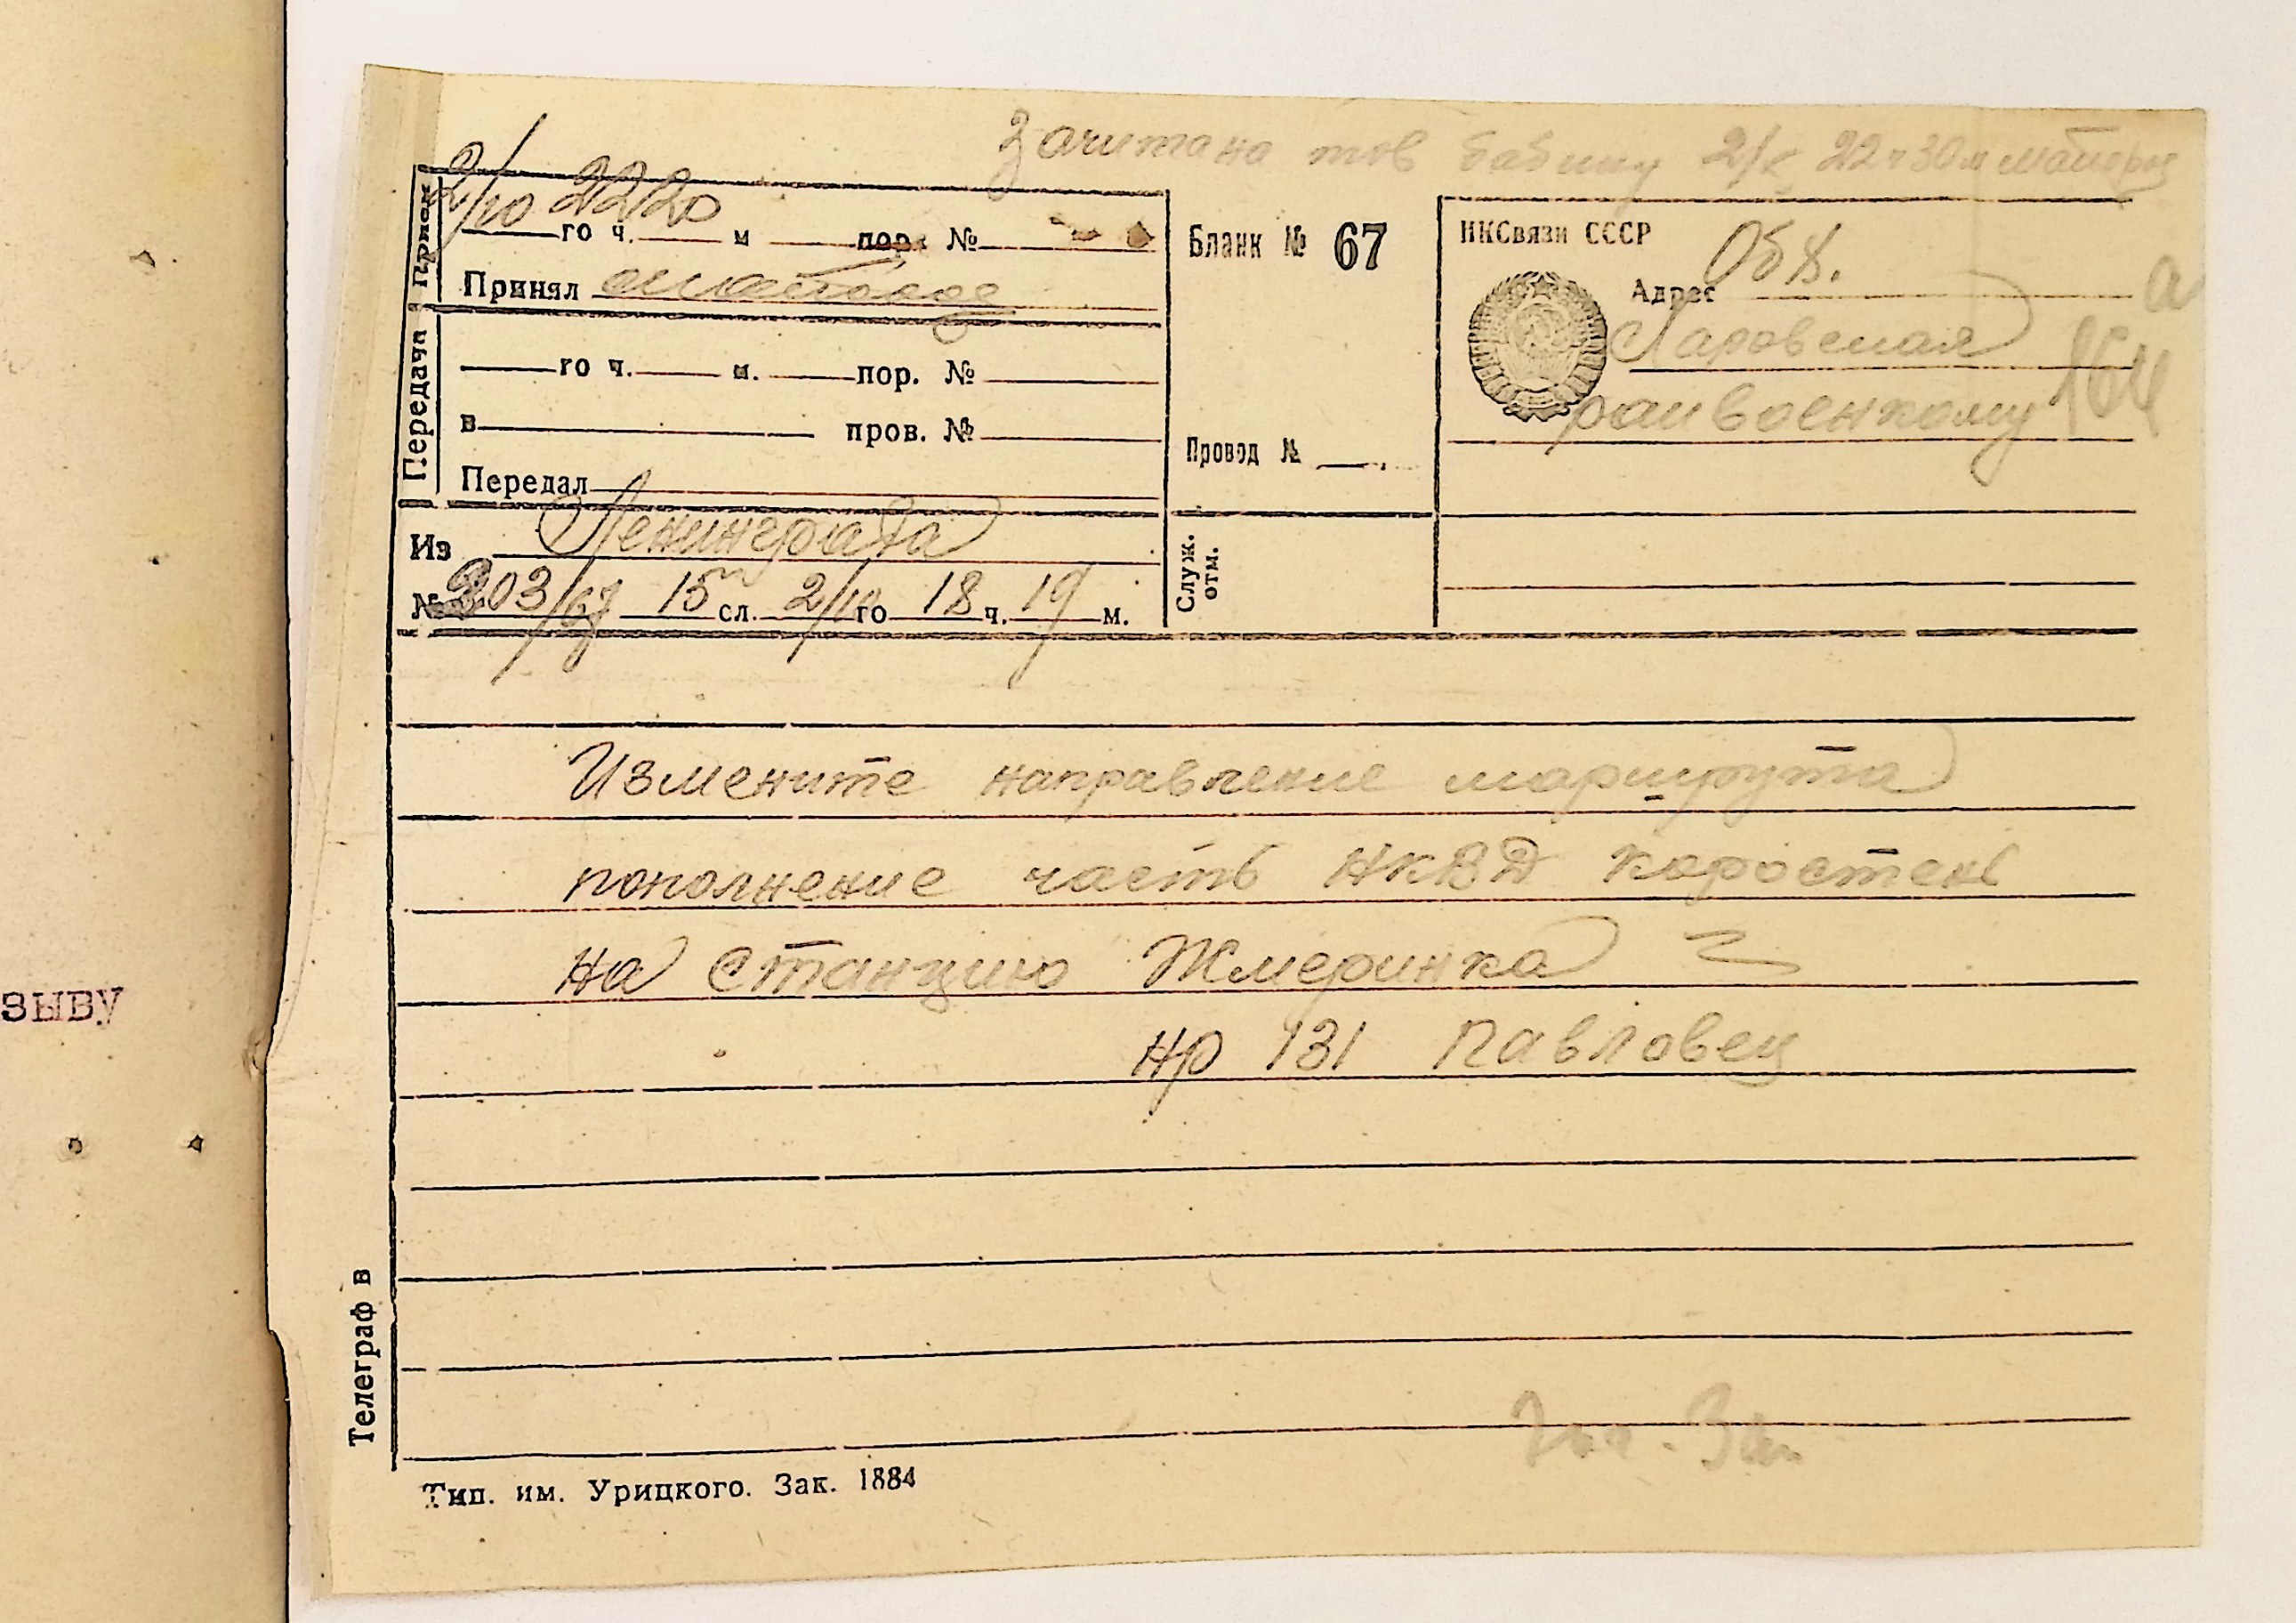 Зачитана тов бабину 2/X 22ч30м
Прием
2/10 22 20
го ч. м пор. №
Принял
Передача
го ч. м. пор. №
в пров. №
Передал
Из Ленинграда
№ 203/67 15 сл. 2/10 го 18 ч. 19 м.
Бланк № 67
Провод №
Служ. отм.
НКСвязи СССР
Адрес
райвоенкому
164
Измените направление маршрута
пополнение часть НКВД Коростень
на станцию Жмеринка
нр 131 Павловец
Телеграф в
Тип. им. Урицкого. Зак. 1884
зыву